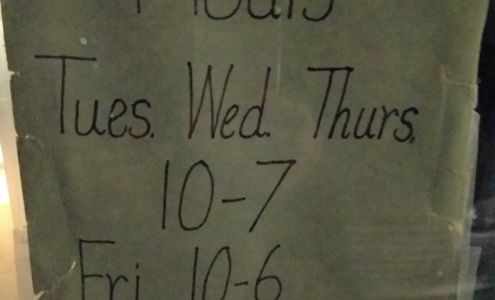 Hours
Tues. Wed. Thurs.
10-7
Fri 10-6